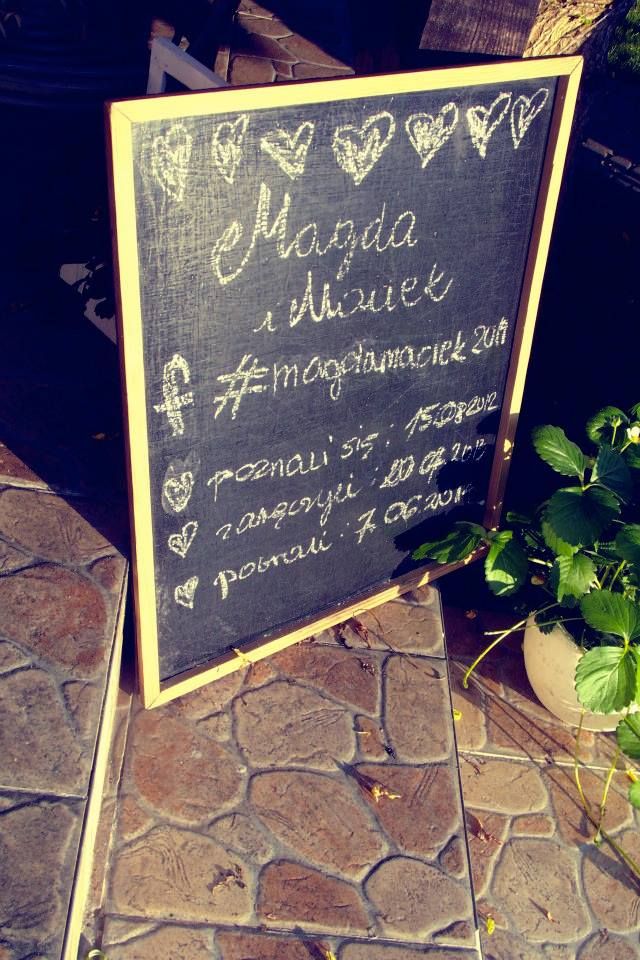 Magda
i Maciek
f #magdamaciek2014
poznali się: 15.08.2012
zaręczyli: 20.07.2013
pobrali: 7.06.2014